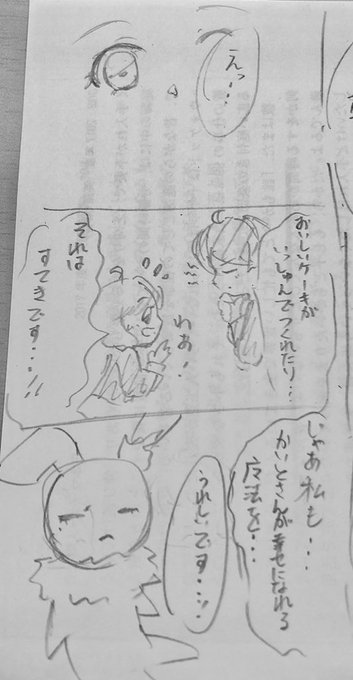 えっ…
おいしいケーキが
いっしゅんでつくれたり…
わあ！
それは
すてきです…!!
じゃあ私も…
かいとさんが幸せになれる
魔法を…
うれしいです…!!